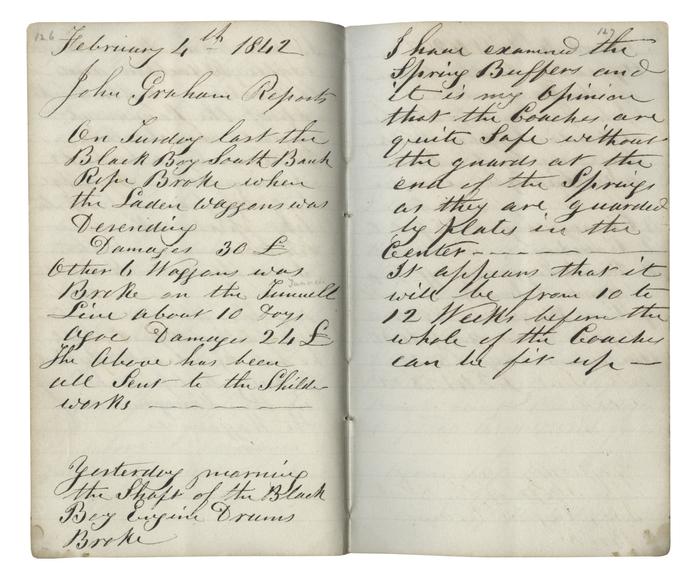 126
February 4th 1842
John Graham Reports
On Tusday last the
Black Boy South Bank
Rope Broke when
the Laden Waggons was
Desending
Damages 30 £
Other 6 Waggons was
Broke on the Tunnell
Line about 10 Days
agoe Damages 24 £
The Above has been
all Sent to the Shildn
works
Yesterday morning
the Shaft of the Black
Boy Engine Drums
Broke
127
I have examined the
Spring Buffers and
it is my Opinion
that the Coaches are
quite Safe without
the guards at the
end of the Springs
as they are guarded
by plates in the
Center
It appears that it
will be from 10 to
12 Weeks before the
whole of the Coaches
can be fit up